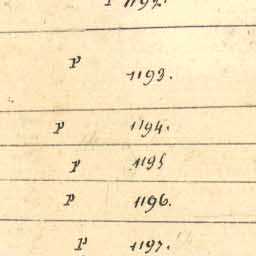 p 1192.
p 1193.
p 1194.
p 1195
p 1196.
p 1197.